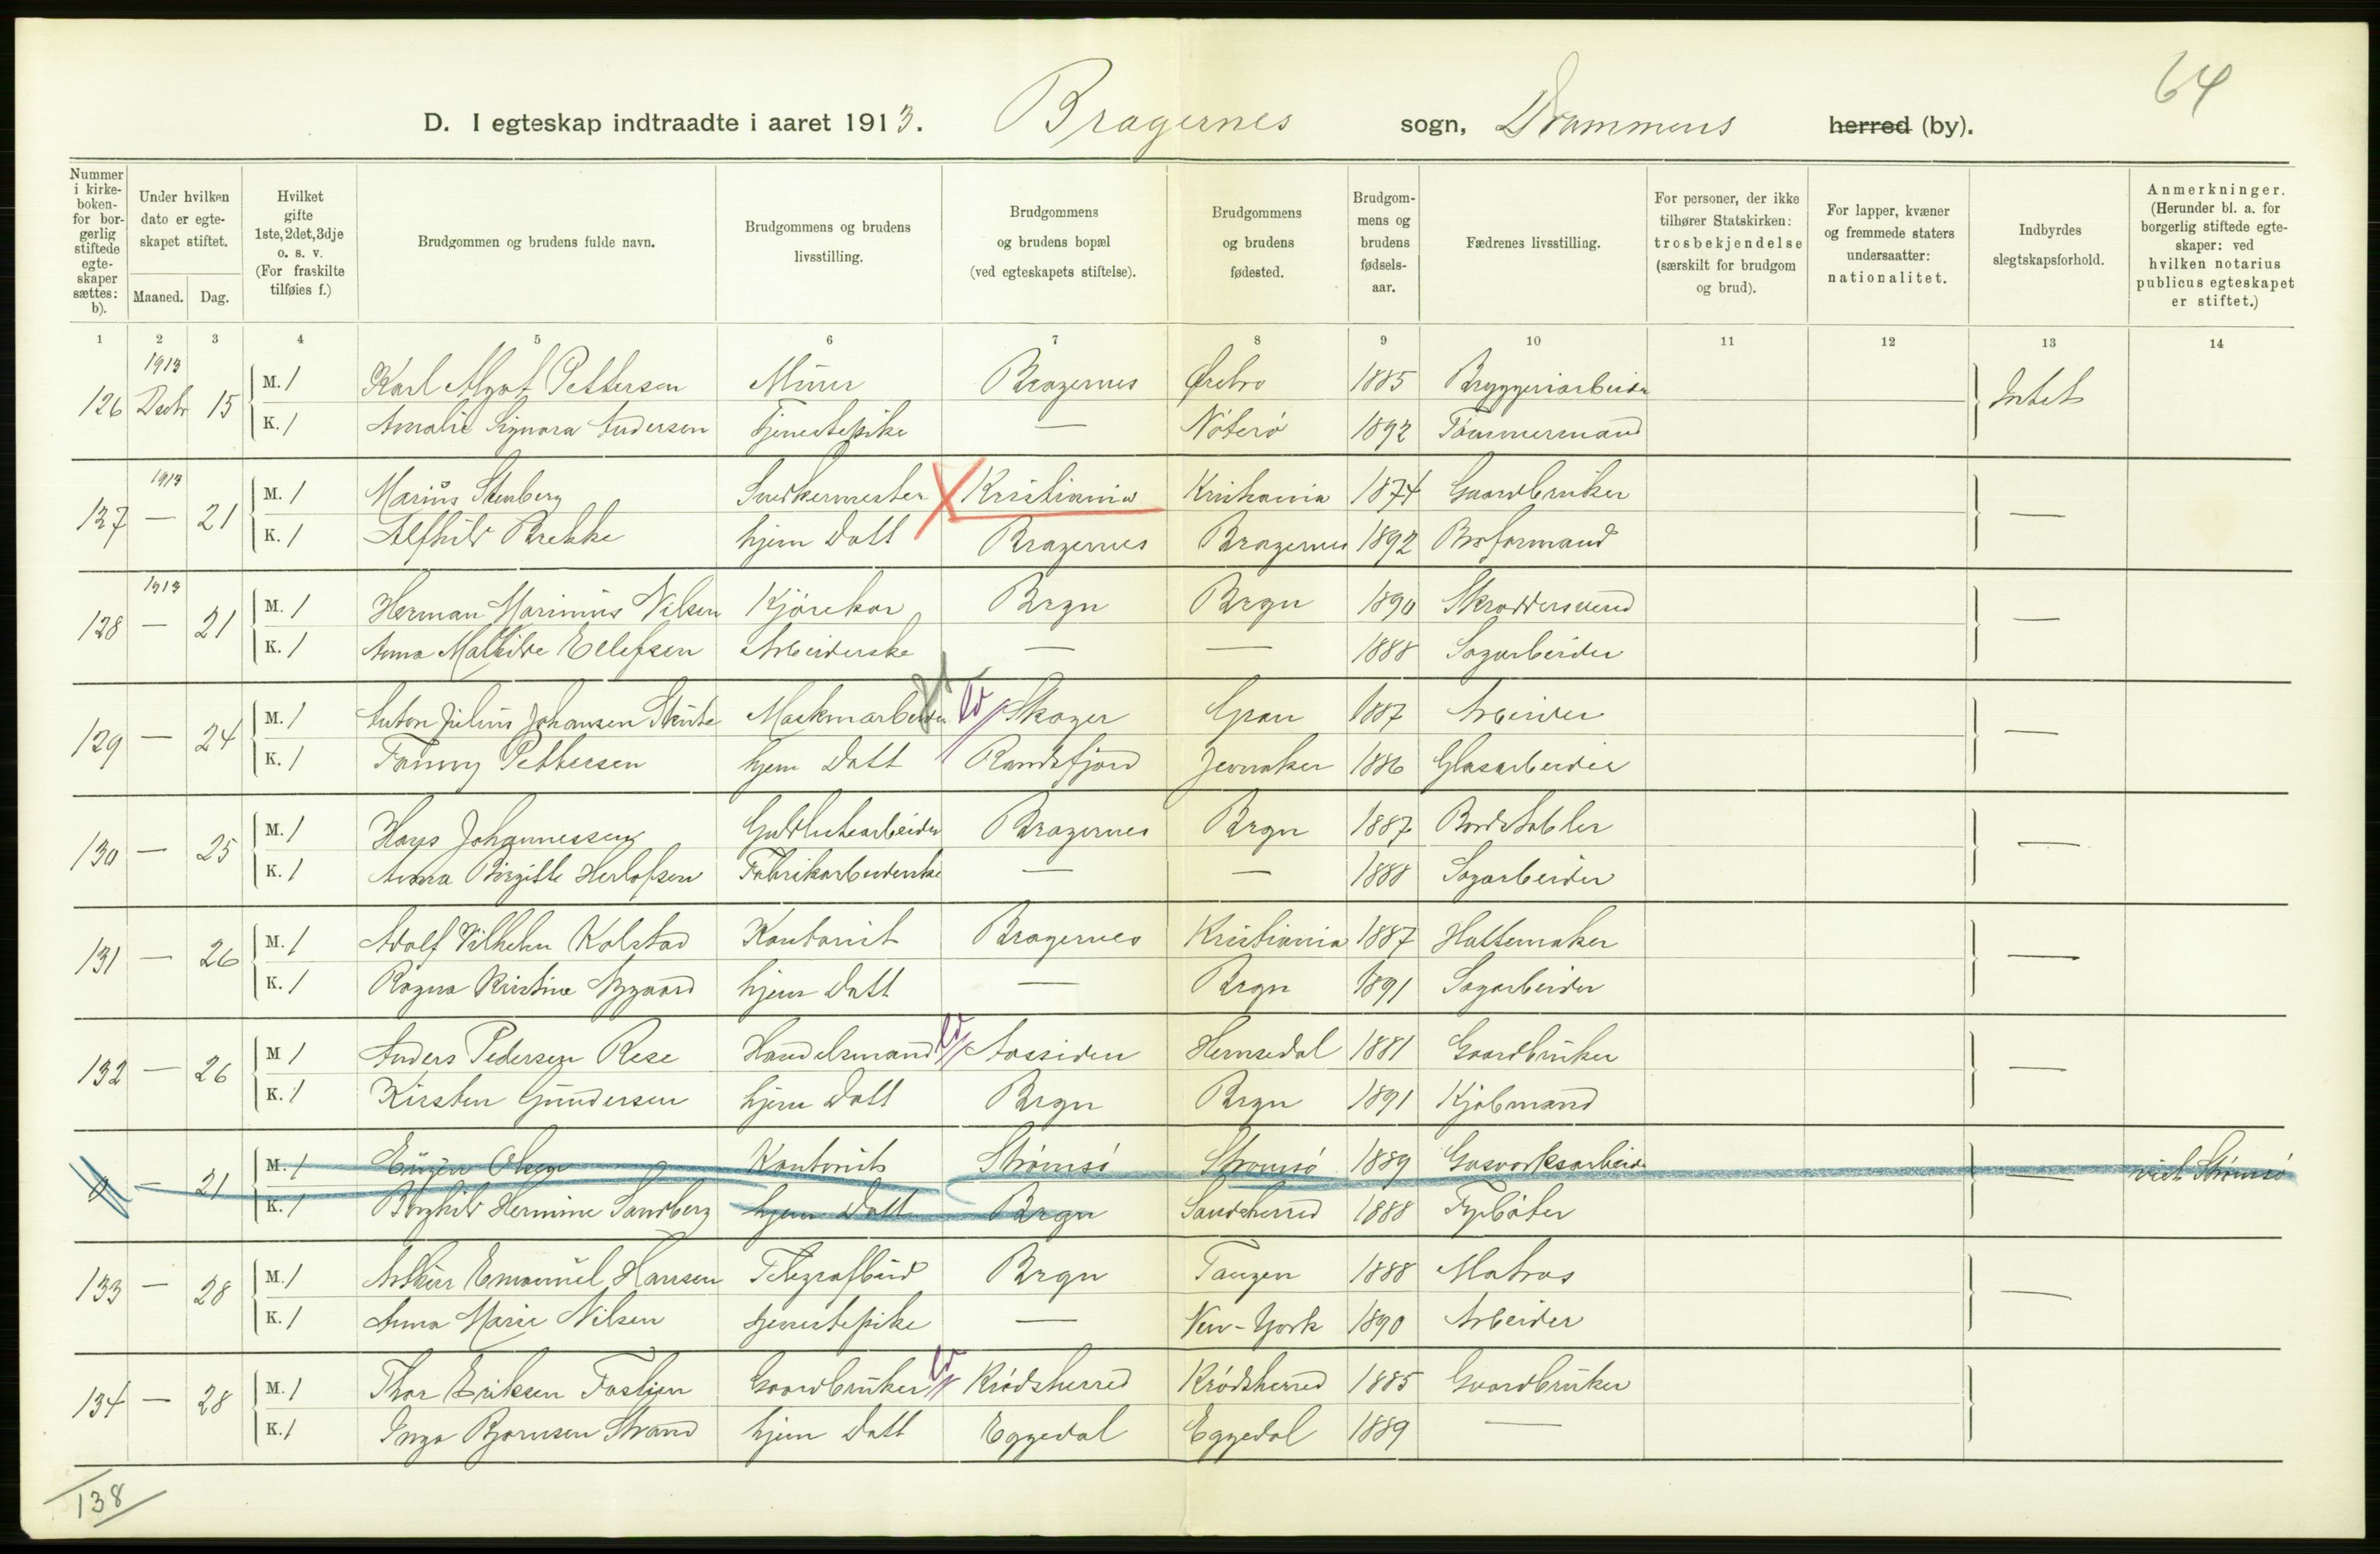 64
D. I egteskap indtraadte i aaret 1913. Bragernes sogn, Drammens herred (by).
Nummer i kirkeboken- for borgerlig stiftede egteskaper sættes: b).
Under hvilken dato er egteskapet stiftet.
Maaned. Dag.
Hvilket gifte 1ste, 2det, 3dje o. s. v. (For fraskilte tilføies f.)
Brudgommen og brudens fulde navn.
Brudgommens og brudens livsstilling.
Brudgommens og brudens bopæl (ved egteskapets stiftelse).
Brudgommens og brudens fødested.
Brudgommens og brudens fødselsaar.
Fædrenes livsstilling.
For personer, der ikke tilhører Statskirken: trosbekjendelse (særskilt for brudgom og brud).
For lapper, kvæner og fremmede staters undersaatter: nationalitet.
Indbyrdes slegtskapsforhold.
Anmerkninger. (Herunder bl. a. for borgerlig stiftede egteskaper: ved hvilken notarius publicus egteskapet er stiftet.)
1 2 3 4 5 6 7 8 9 10 11 12 13 14
1913
126 Decbr 15 M. 1 Karl Algot Pettersen Murer Bragernes Ørebro 1885 Bryggeriarbeider Intet
K. 1 Amalie Signora Andersen Tjenestepike — Nøterø 1892 Tømmermand
1913
127 — 21 M. 1 Marius Stenberg Snedkermester Kristiania Kristiania 1874 Gaardbruker —
K. 1 Alfhild Brekke hjem Datt Bragernes Bragernes 1892 Basformand
1913
128 — 21 M. 1 Herman Marinius Nilsen Kjørekar Brgn Brgn 1890 Skræddersvend —
K. 1 Anna Mathilde Ellefsen Arbeiderske — — 1888 Sagarbeider
129 — 24 M. 1 Anton Julius Johansen Skute Maskinarbeider Skoger Gran 1887 Arbeider —
K. 1 Fanny Pettersen hjem Datt Randsfjord Jevnaker 1886 Glasarbeider
130 — 25 M. 1 Hans Johannessen Guldlistearbeider Bragernes Brgn 1887 Bordstabler —
K. 1 Anna Birgitte Herlofsen Fabrikarbeiderske — — 1888 Sagarbeider
131 — 26 M. 1 Adolf Vilhelm Kolstad Kontorist Bragernes Kristiania 1887 Hattemaker —
K. 1 Ragna Kristine Nygaard hjem Datt — Brgn 1891 Sagarbeider
132 — 26 M 1 Anders Pedersen Rese Handelsmand Aassiden Hemsedal 1881 Gaardbruker —
K. 1 Kirsten Gundersen hjem Datt Brgn Brgn 1891 Kjøbmand
— 21 M. 1 Eugen Olsen Kontorist Strømsø Strømsø 1889 Gasverksarbeider — viet Strømsø
K. 1 Borghild Hermine Sandberg hjem Datt Brgn Sandeherred 1888 Fyrbøter
133 — 28 M. 1 Arthur Emanuel Hansen Telegrafbud Brgn Tangen 1888 Matros —
K. 1 Anna Marie Nilsen tjenestepike — New-York 1890 Arbeider
134 — 28 M. 1 Thor Eriksen Fastjen Gaardbruker Krødsherred Krødsherred 1885 Gaardbruker
K. 1 Inga Bjørnsen Strand hjem Datt Eggedal Eggedal 1889 —
138